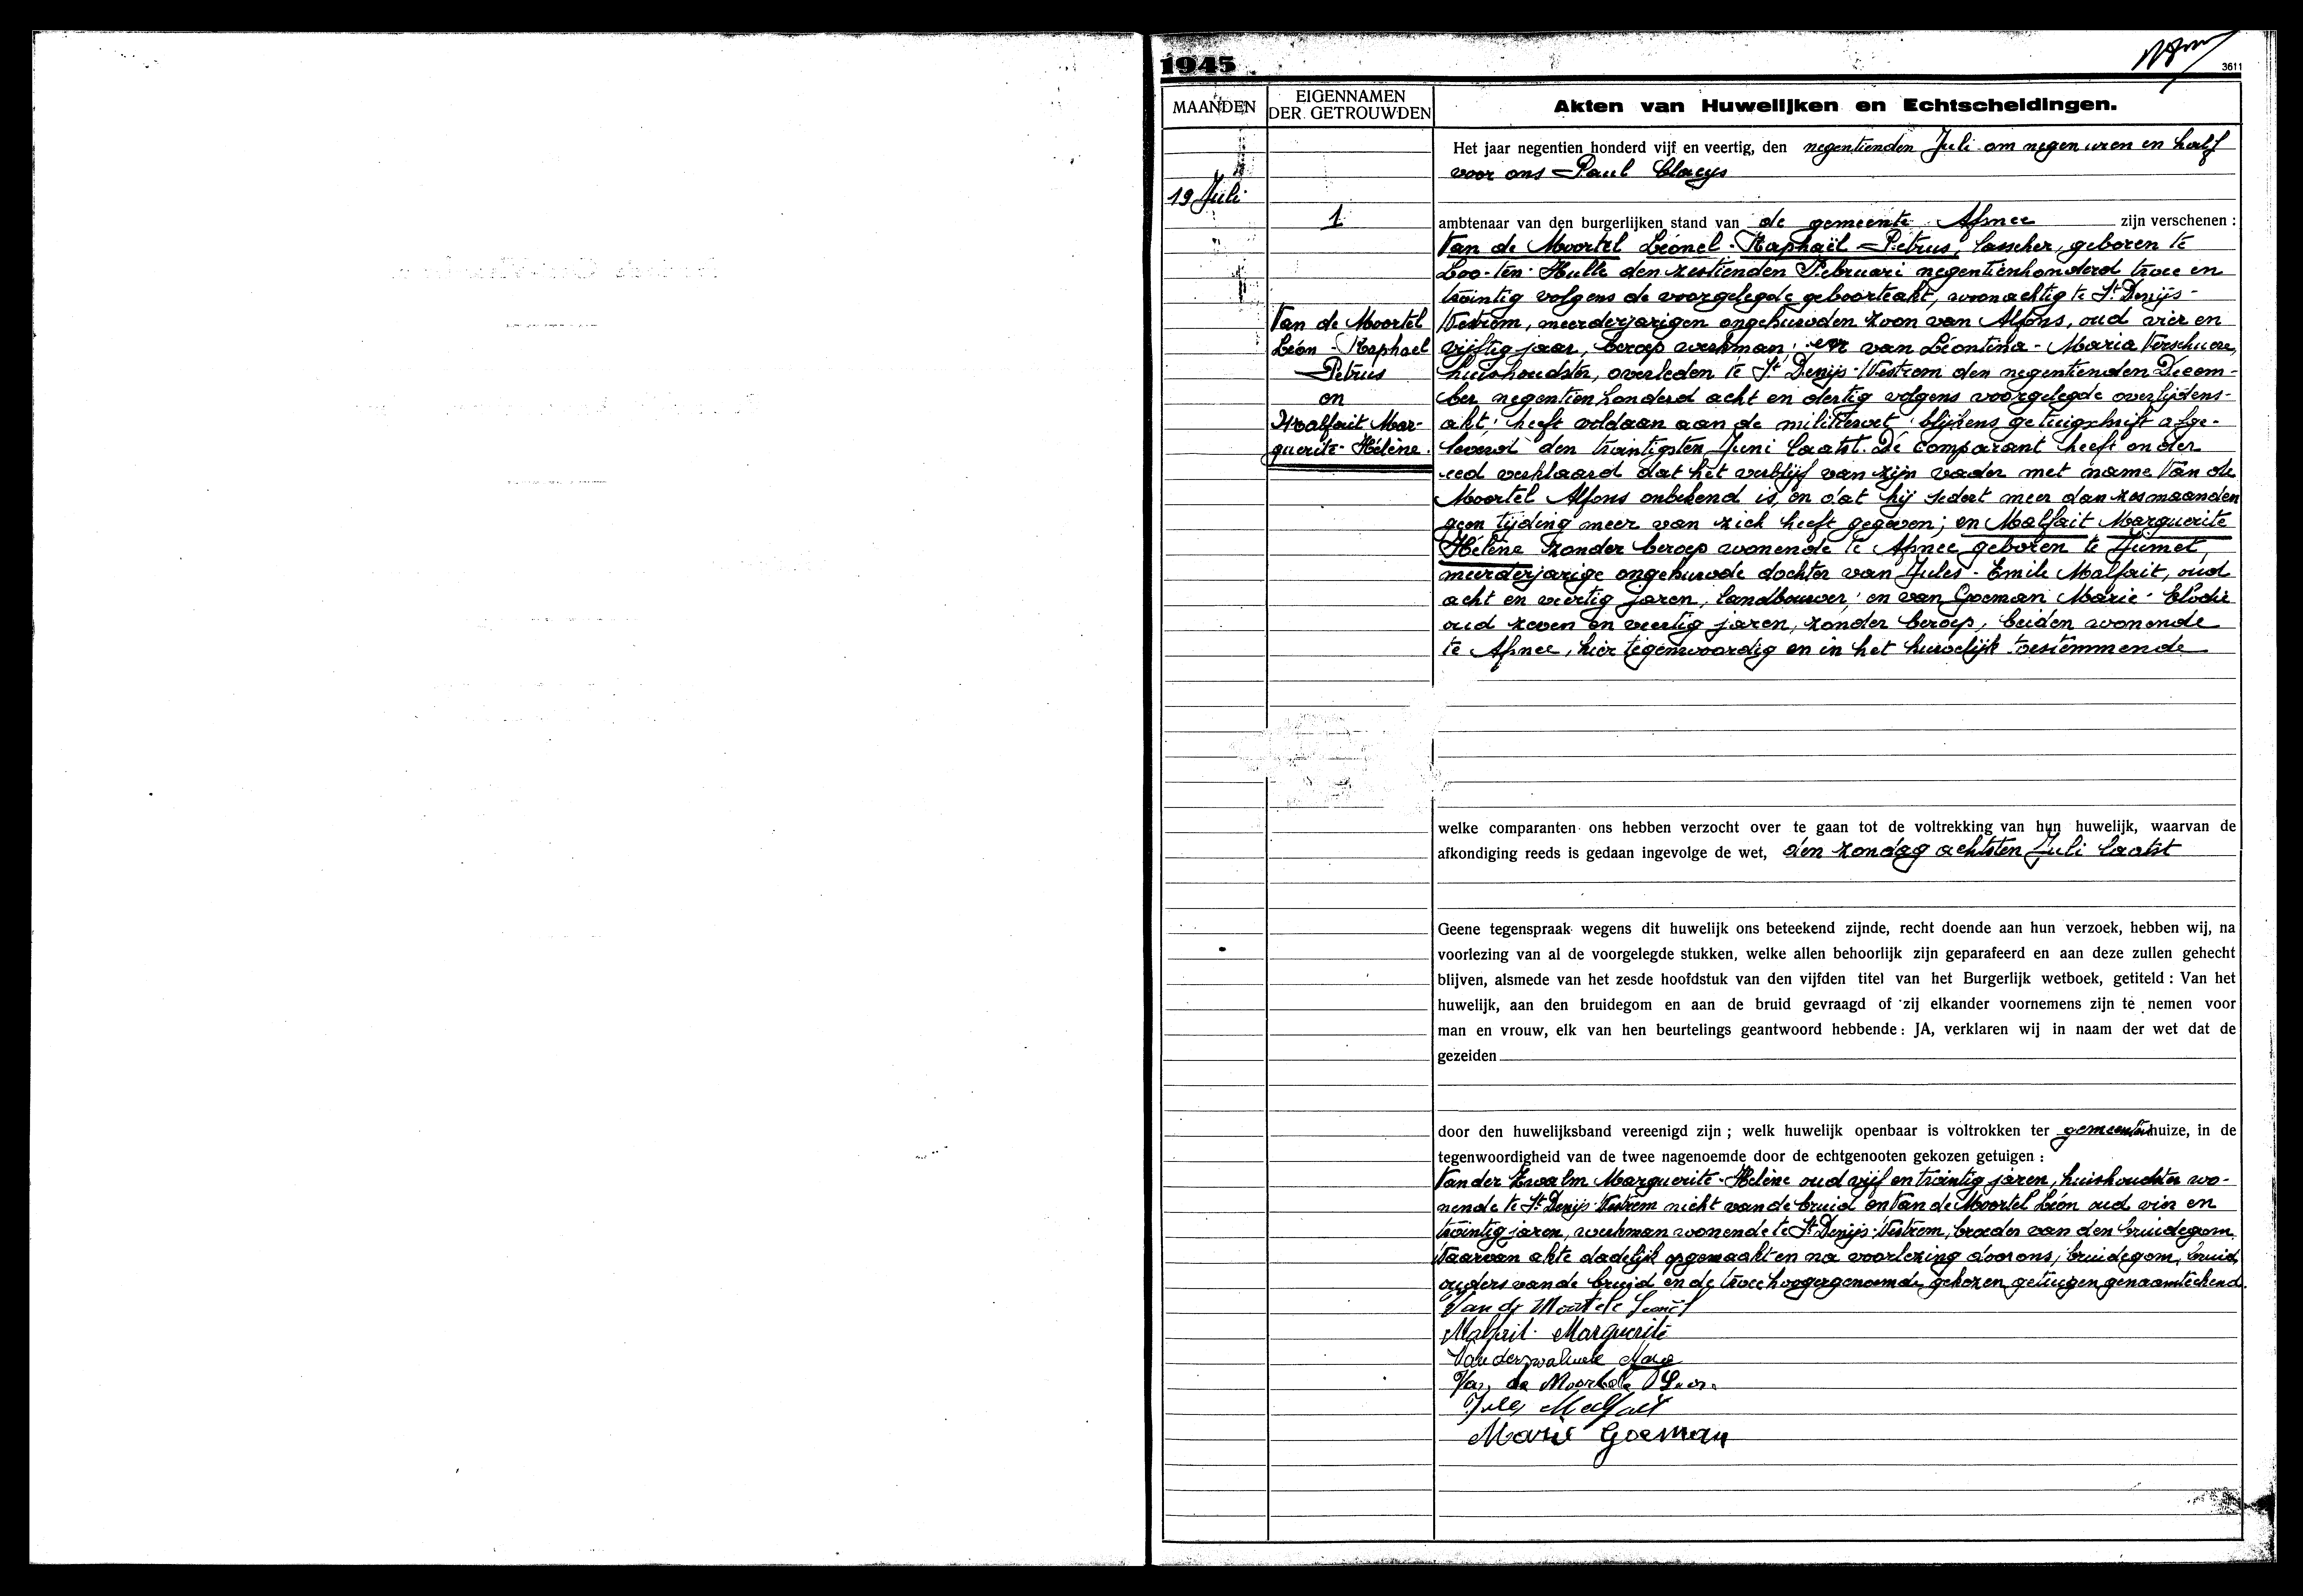 1945
3611
MAANDEN
EIGENNAMEN
DER GETROUWDEN
Akten van Huwelijken en Echtscheidingen.
Het jaar negentien honderd vijf en veertig, den negentienden Juli om negen uren en half
voor ons Paul Claeys
19 Juli
1
ambtenaar van den burgerlijken stand van de gemeente Afsnee zijn verschenen :
Van de Moortel Léonel-Raphaël-Petrus, lasscher, geboren te
Loo-ten-Hulle den zestienden Februari negentienhonderd twee en
twintig volgens de voorgelegde geboorteakt, woonachtig te St Denijs-
Westrem, meerderjarigen ongehuwden zoon van Alfons, oud vier en
vijftig jaar, beroep werkman; en van Léontina-Maria Verschuere,
huishoudster, overleden te St Denijs-Westrem den negentienden Decem-
ber negentienhonderd acht en dertig volgens voorgelegde overlijdens-
akt; heeft voldaan aan de militiewet blijkens getuigschrift afge-
leverd den twintigsten Juni laatst. De comparant heeft onder
eed verklaard dat het verblijf van zijn vader met name Van de
Moortel Alfons onbekend is, en dat hij sedert meer dan zes maanden
geen tijding meer van zich heeft gegeven; en Malfait Marguerite
Hélène zonder beroep wonende te Afsnee geboren te Jumet,
meerderjarige ongehuwde dochter van Jules-Emile Malfait, oud
acht en veertig jaren, landbouwer; en van Goeman Marie-Elodie
oud zeven en veertig jaren, zonder beroep, beiden wonende
te Afsnee, hier tegenwoordig en in het huwelijk toestemmende
Van de Moortel
Léon-Raphael
Petrus
en
Malfait Mar-
guerite-Hélène.
welke comparanten ons hebben verzocht over te gaan tot de voltrekking van hun huwelijk, waarvan de
afkondiging reeds is gedaan ingevolge de wet, den zondag achtsten Juli laatst
Geene tegenspraak wegens dit huwelijk ons beteekend zijnde, recht doende aan hun verzoek, hebben wij, na
voorlezing van al de voorgelegde stukken, welke allen behoorlijk zijn geparafeerd en aan deze zullen gehecht
blijven, alsmede van het zesde hoofdstuk van den vijfden titel van het Burgerlijk wetboek, getiteld : Van het
huwelijk, aan den bruidegom en aan de bruid gevraagd of zij elkander voornemens zijn te nemen voor
man en vrouw, elk van hen beurtelings geantwoord hebbende : JA, verklaren wij in naam der wet dat de
gezeiden
door den huwelijksband vereenigd zijn ; welk huwelijk openbaar is voltrokken ter gemeentenhuize, in de
tegenwoordigheid van de twee nagenoemde door de echtgenooten gekozen getuigen :
Van der Zwalm Marguerite-Helène oud vijf en twintig jaren, huishoudster wo-
nende te St Denijs-Westrem nicht van de bruid en Van de Moortel Léon oud vier en
twintig jaren, werkman wonende te St Denijs-Westrem, broeder van den bruidegom.
Waarvan akte dadelijk opgemaakt en na voorlezing door ons, bruidegom, bruid,
ouders van de bruid en de twee hoogergenoemde gekozen getuigen genaamteekend.
Van de Moortele Leonel
Malfait Marguerite
Van de Moortele Leon
Jules Malfait
Marie Goeman